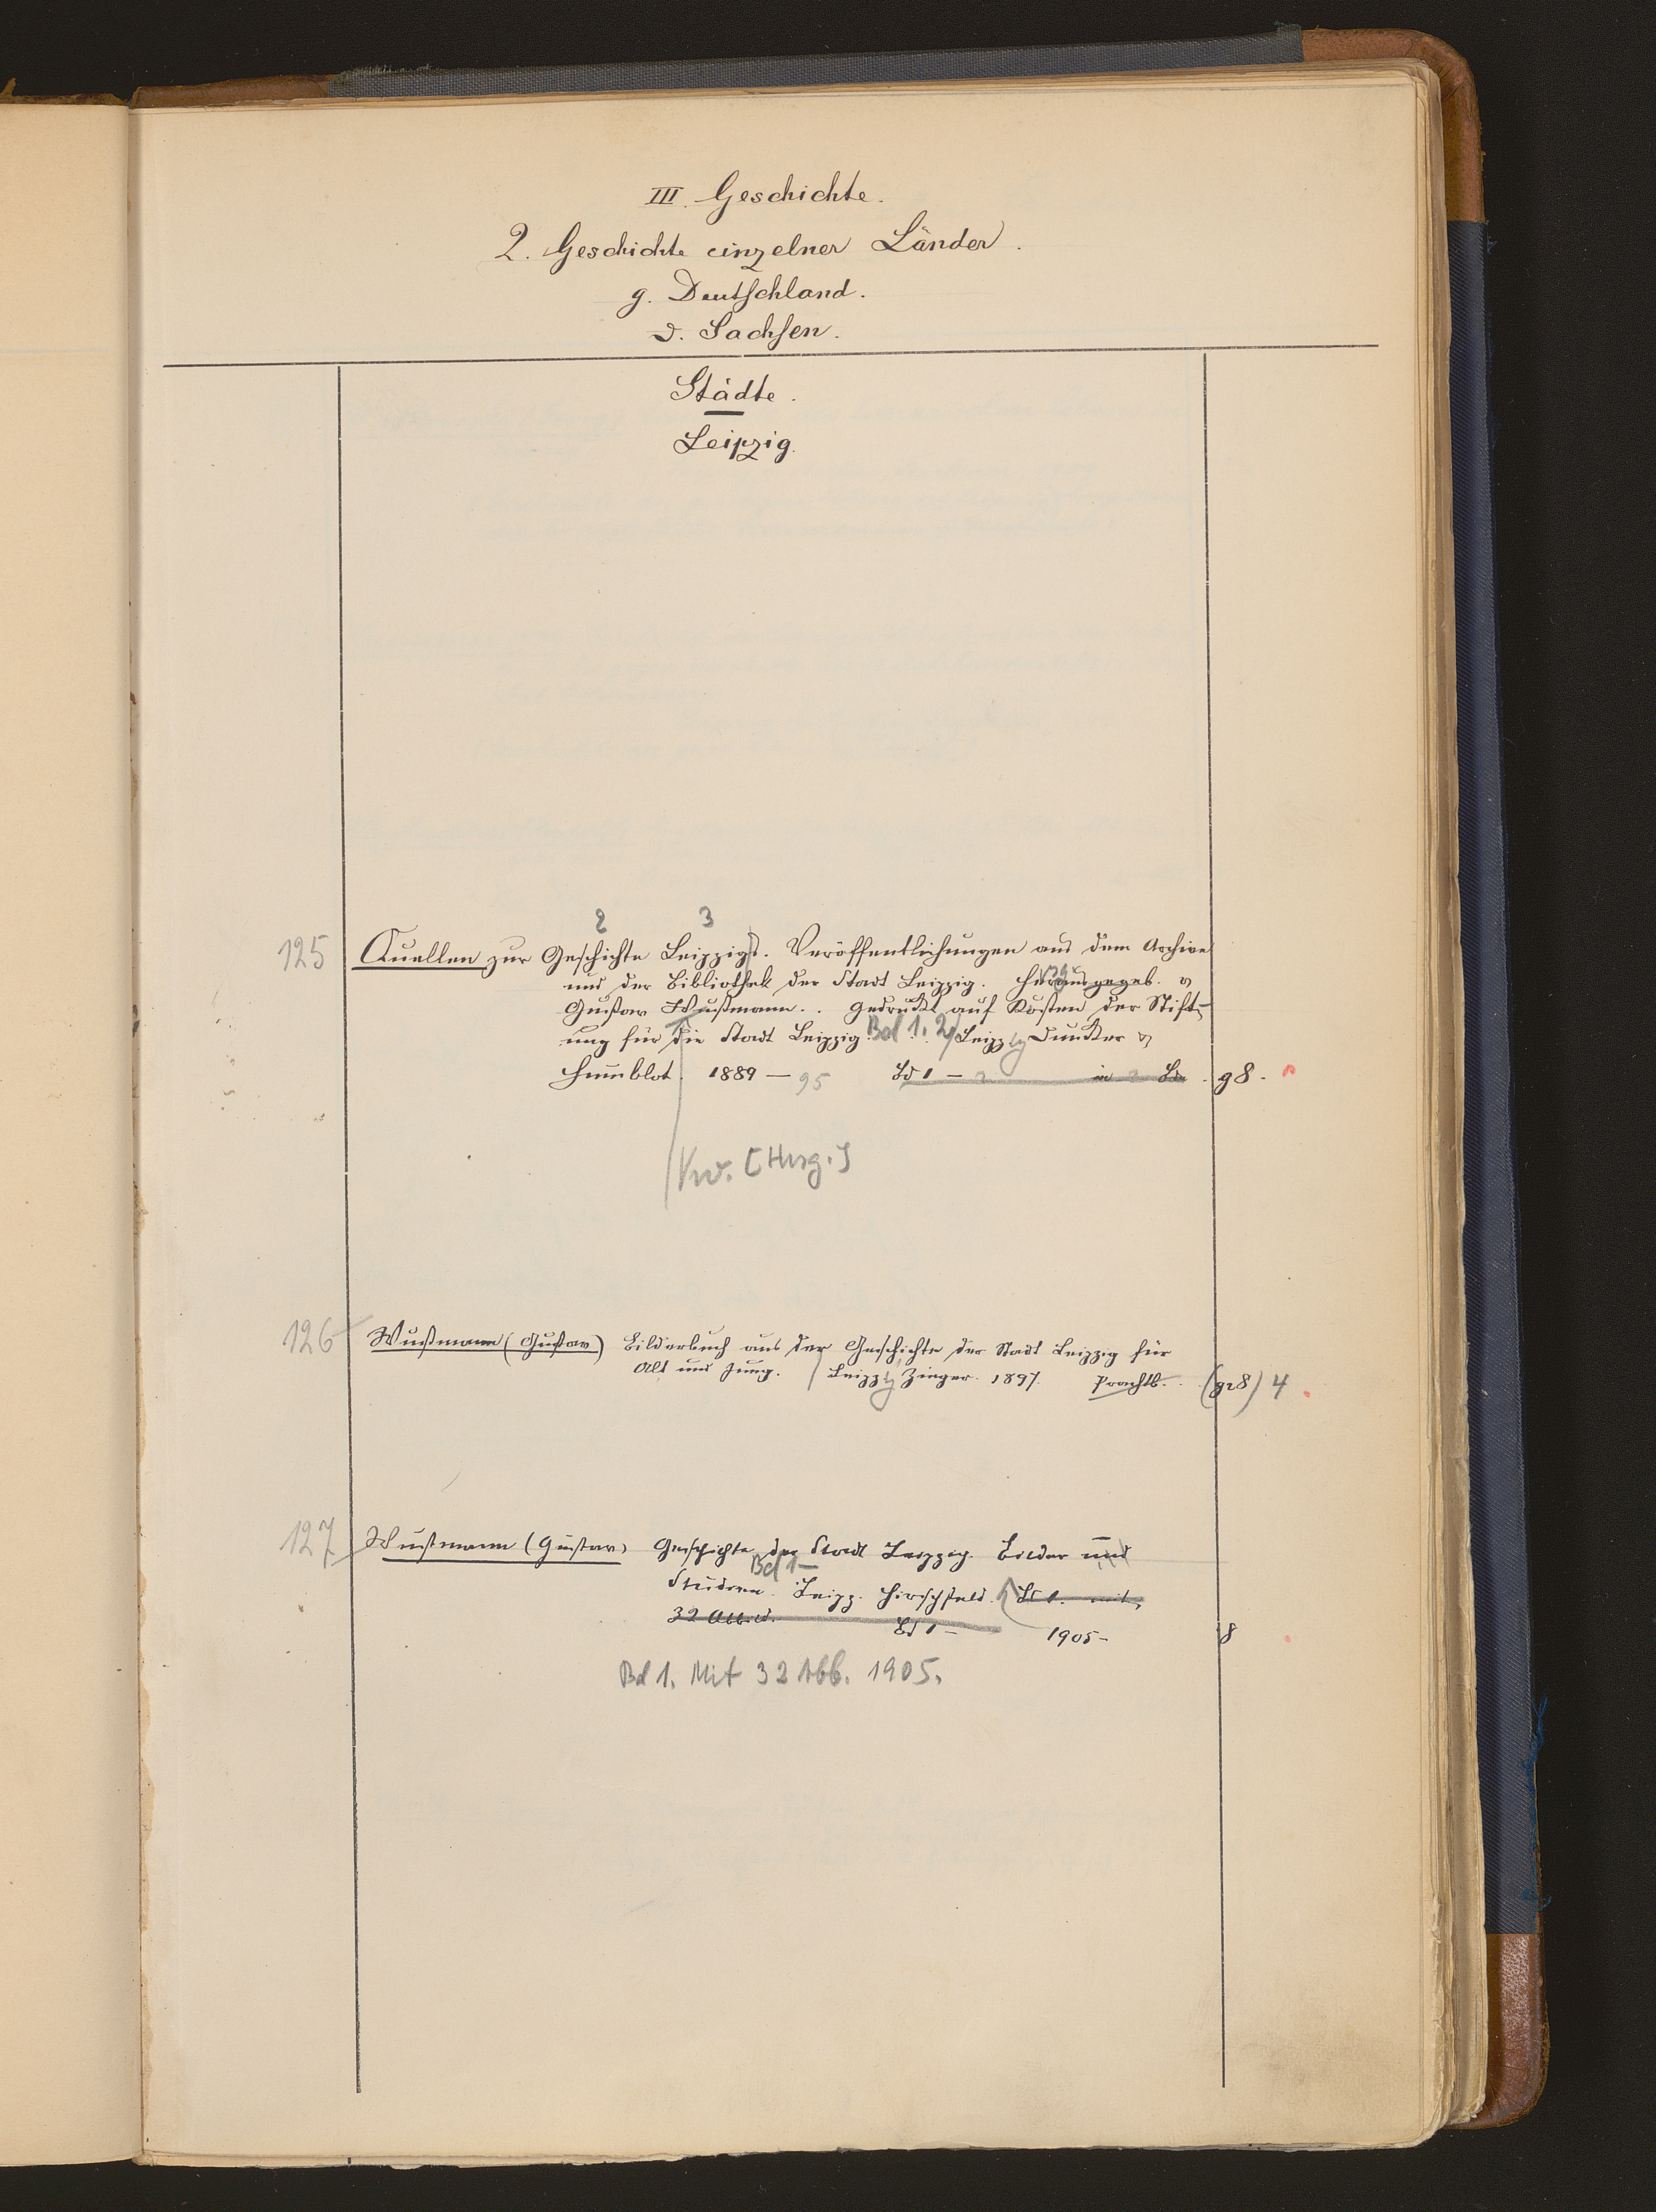 III. Geschichte.
2. Geschichte einzelner Länder.
g. Deutschland.
d. Sachsen.
Städte.
Leipzig.
2 3
125 Quellen zur Geschichte Leipzigs. Veröffentlichungen aus dem Archive
und der Bibliothek der Stadt Leipzig. Herausgegeb. v
Gustav Wustmann. . Gedruckt auf Kosten der Stift-
ung für die Stadt Leipzig. Bd 1. 2 Leipzig Duncker &
Humblot. 1889 – 95 Bd 1 – 2 in 2 Bdn . g8.
Vw. [Hrsg.]
126 Wustmann (Gustav) Bilderbuch aus der Geschichte der Stadt Leipzig für
Alt und Jung. Leipzig Zieger. 1897. Prachtb. . . (gr8) 4
127 Wustmann (Gustav) Geschichte der Stadt Leipzig. Bilder und
Bd 1–
Studien. Leipz. Hirschfeld. Bd 1. mit
32 Abbild. Bd 1 – 1905– 8
Bd 1. Mit 32 Abb. 1905.